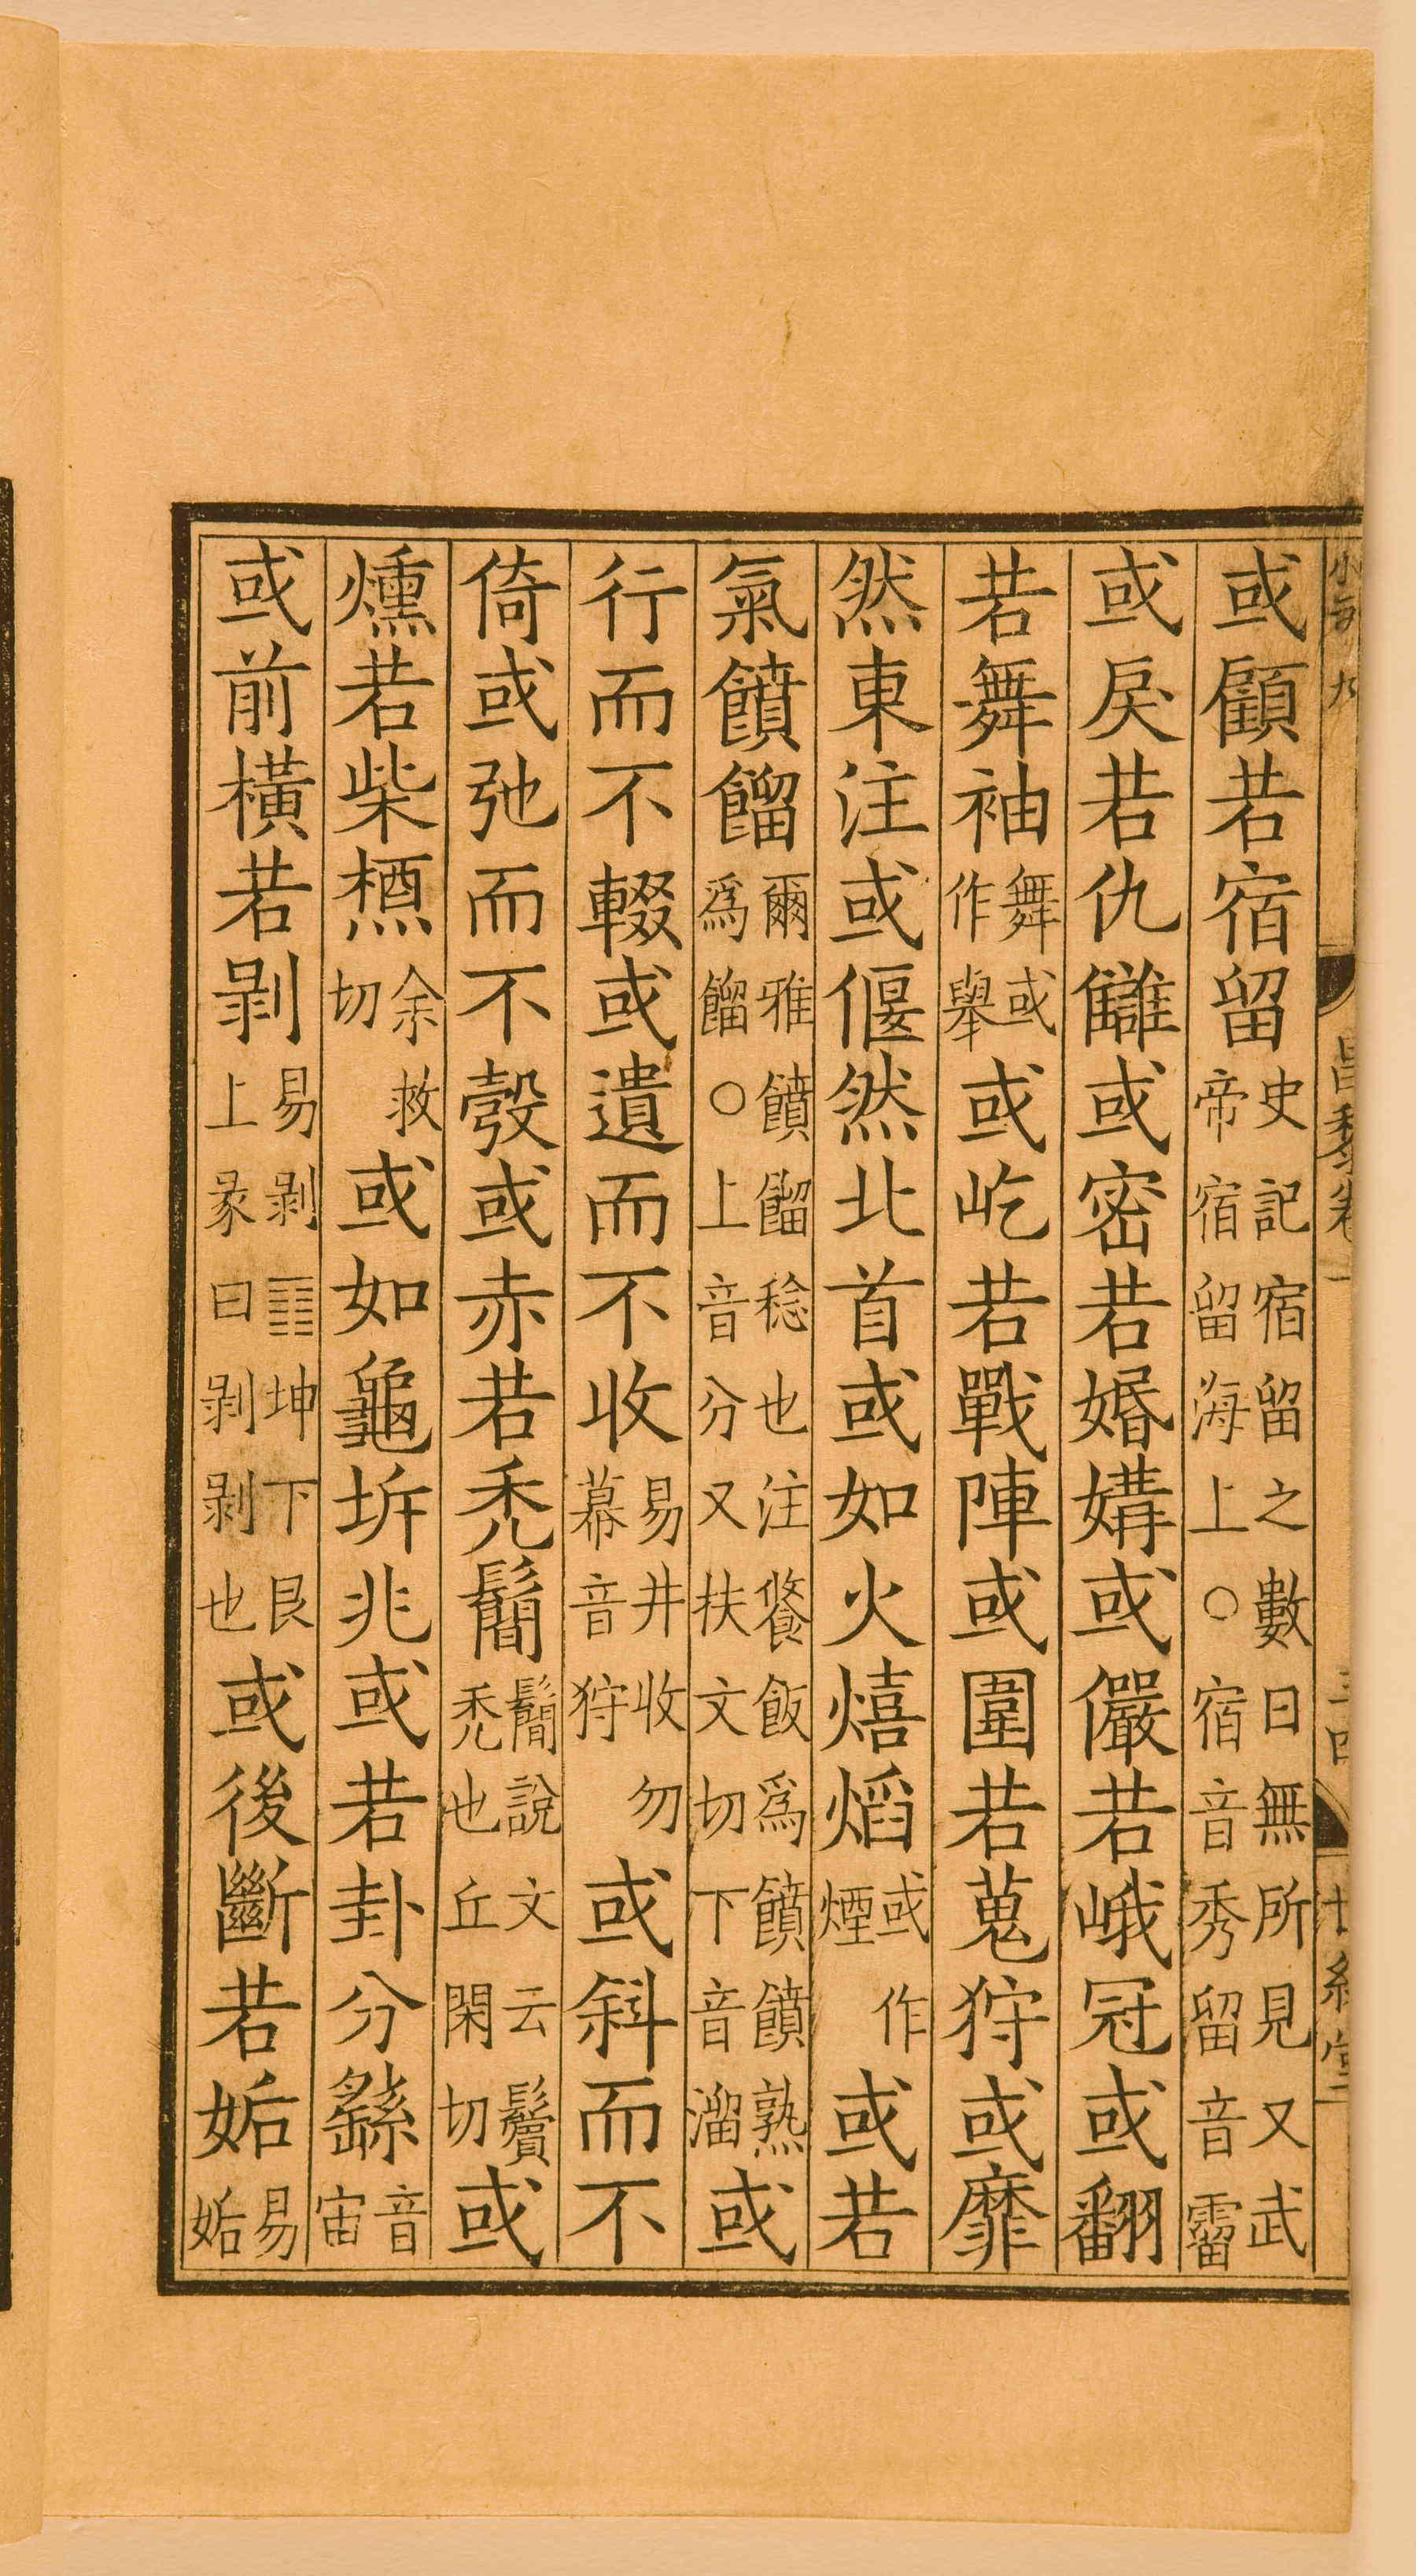 或顧若宿留史記宿留之數日無所見又武帝宿留海上○宿音秀留音霤
或戾若仇讎或密若婚媾或儼若峨冠或翻
若舞袖舞或作舉或屹若戰陣或圍若蒐狩或靡
然東注或偃然北首或如火熺焰或作煙或若
氣饙餾爾雅饙餾稔也注餐飯爲饙饙熟爲餾○上音分又扶文切下音溜或
行而不輟或遺而不收易井收勿幕音狩或斜而不
倚或弛而不彀或赤若禿鬜鬜說文云鬢禿也丘閑切或
燻若柴槱余救切或如龜坼兆或若卦分繇音宙
或前橫若剝易剝䷖坤下艮上彖曰剝剝也或後斷若姤易姤